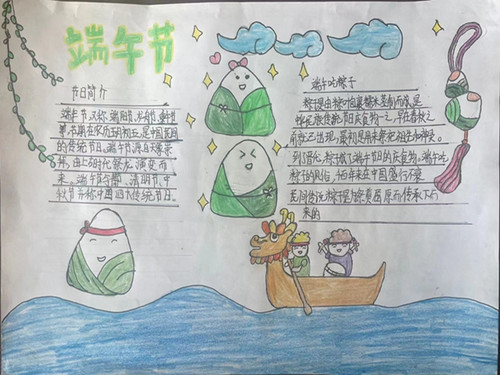 端午节
节日简介
端午节,又称端阳节、龙舟节、
节,日期在农历五月初五,是中国民间
的传统节日。端午节源自天象崇
拜,由上古时代祭龙演变而
来。端午节与春节、清明节、中
秋节并称中国四大传统节日。
端午吃粽子
粽子是由粽叶包裹糯米蒸制而成,是
传统节日食物之一,早在春秋之
前就已出现,最初是用来祭祀祖先和神灵。
到了晋代,粽子成了端午节日的庆食物。端午吃
粽子的风俗,千百年来在中国盛行不衰
民间传说粽子是为祭奠屈原而传承下
来的